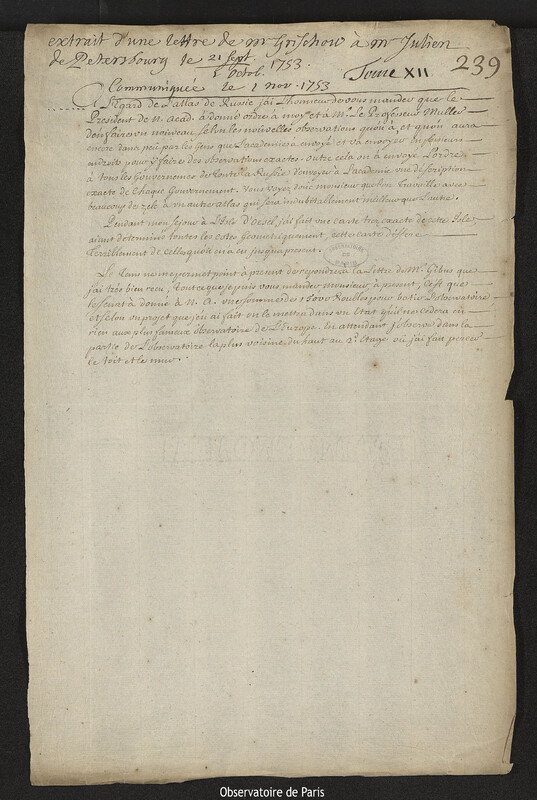 extrait d'une lettre de mr Grischow à mr Julien
de Petersbourg le 21 Sept / 2 Octob. 1753.
Tome XII
239
Communiquée le 1 nov. 1753
A L'Egard de l'atlas de Russie j'ai L'honneur de vous mander que le
President de N. Acad. à donné ordre à moy et à M. Le Professeur Muller
d'en faire un nouveau selon les nouvelles observations qu'on a, et qu'on aura
encore dans peu par les Gens que l'academie a envoyé et va envoyer en plusieurs
endroits pour y faire des observations exactes. outre cela on à envoyé L'ordre
à tous les Gouverneurs de toute la Russie d'envoyer à L'academie une description
exacte de Chaque Gouvernement. Vous voyez donc monsieur que l'on travaille avec
beaucoup de zele à un autre atlas qui sera indubitablement meilleur que l'autre.
Pendant mon sejour à L'Isle d'Oesel j'ai fait une Carte tres exacte de cette Isle,
aiant determiné toutes les costes Geometriquement, cette carte differe
terriblement de celles qu'on en a eu jusqu'a present.
Le tems ne me permet point à present de repondre à la Lettre de Mr. que
j'ai tres bien recu, tout ce que je puis vous mander monsieur à present, c'est que
le senat à donné à N. A. une somme de Roubles pour batir L'observatoire
et selon un projet que j'en ai fait on le mettra dans un Etat qu'il ne cedera en
rien aux plus fameux observatoire de L'Europe. En attendant J'observe dans la
partie de L'observatoire la plus voisine du haut au 2e. etage où j'ai fait percer
le toit et le mur.
OBSERVATOIRE DE PARIS
Observatoire de Paris